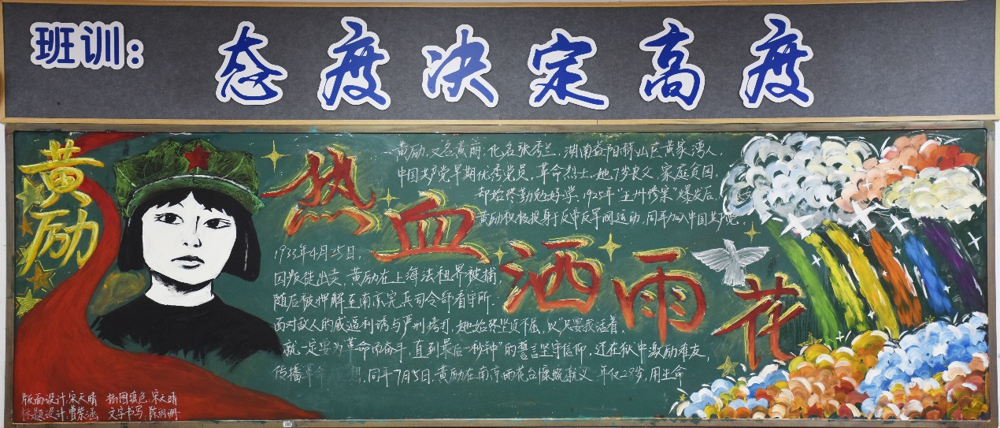 班训:
态度决定高度
黄励
热血洒雨花
黄励,又名黄丽,化名张秀兰,湖南益阳赫山区黄家湾人,
中国共产党早期优秀党员,革命烈士。她7岁丧父,家庭贫困,
却始终勤勉好学。1925年"五卅惨案"爆发后,
黄励积极投身于反帝反军阀运动,同年加入中国共产党。
1933年4月25日,
因叛徒出卖,黄励在上海法租界被捕,
随后被押解至南京宪兵司令部看守所。
面对敌人的威逼利诱与严刑拷打,她始终坚贞不屈,以"只要我活着,
就一定要为革命而奋斗,直到最后一秒钟"的誓言坚守信仰,还在狱中激励难友,
传播革命 想。同年7月5日,黄励在南京雨花台慷慨就义,年仅28岁,用生命
版面设计:宋天晴 插图填色:宋天晴
标题设计:曹 涵 文字书写:陈 珊